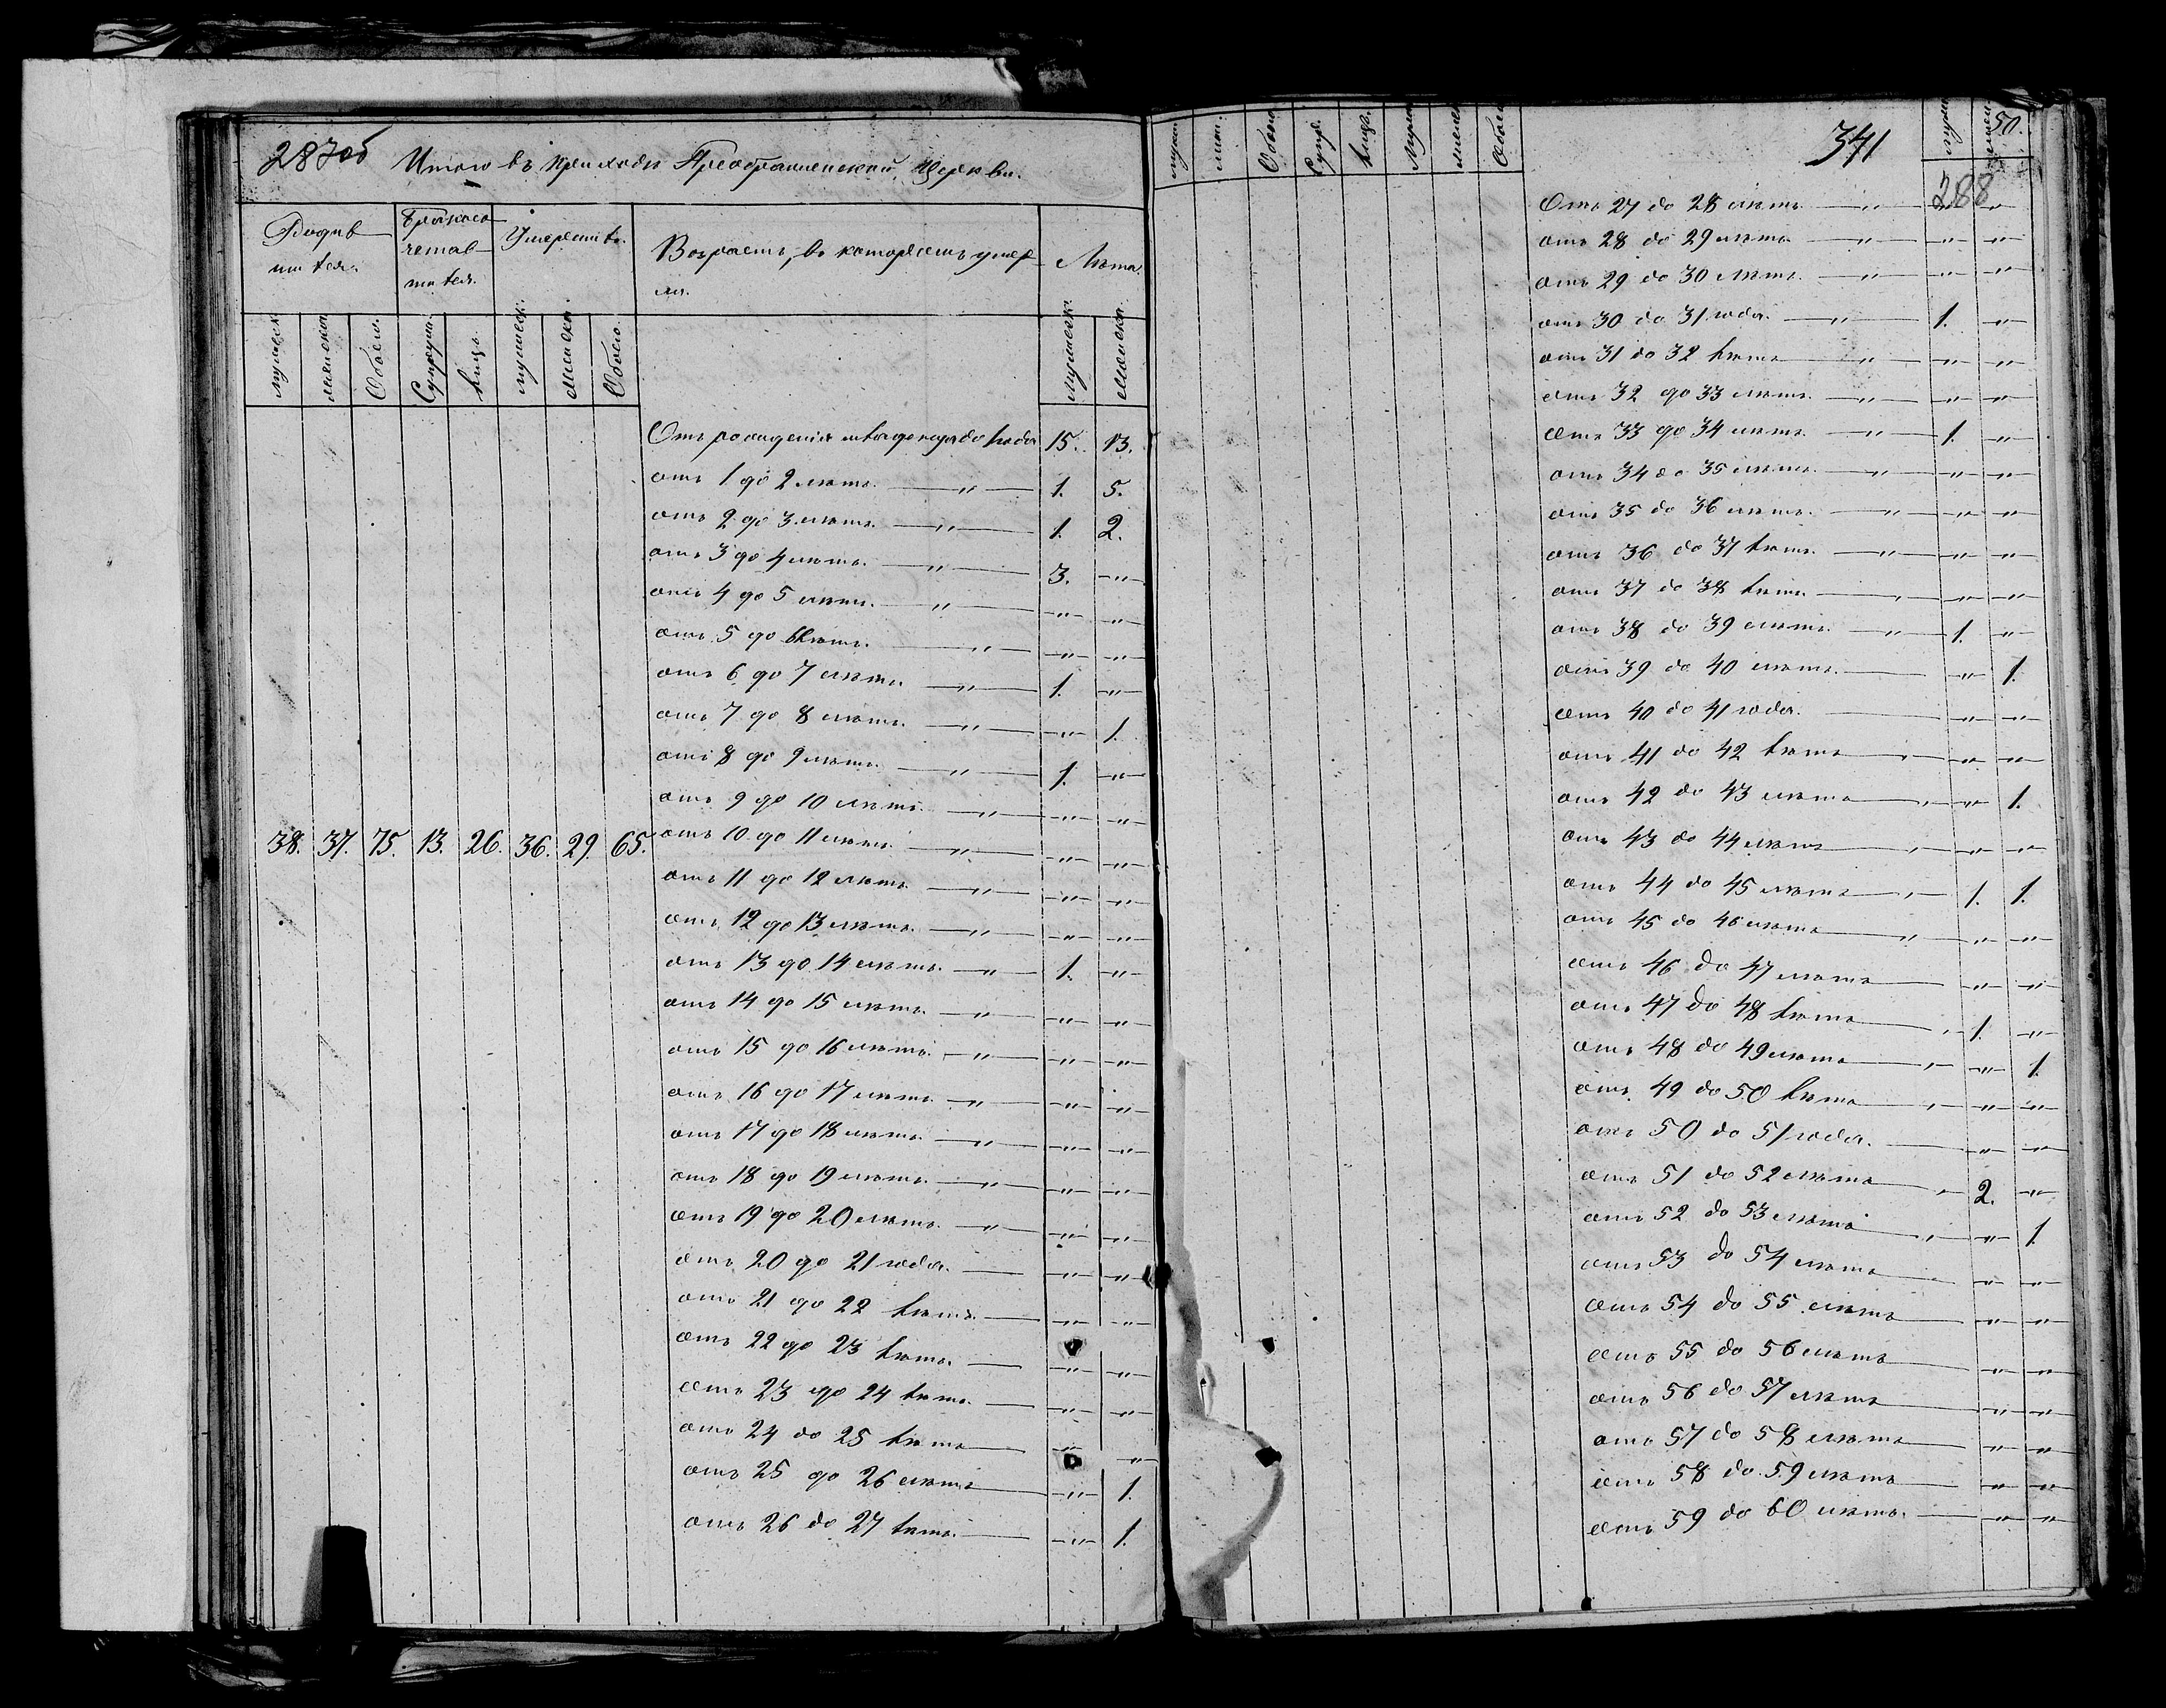 287об Итого въ приходѣ Преображенской Церкви.
Родив
шихся.
Бракосо
четав
шихся.
Умершихъ.
Возрастъ, въ которомъ умер
ли.
Лѣта.
мужеск. женска Обоего. Супруш. Лицъ. мужеск. женска Обоего. мужеска. женска.
Отъ рожденія младенца до 1 года 15. 13.
отъ 1 до 2 лѣтъ. — " — 1. 5.
отъ 2 до 3 лѣтъ. — " — 1. 2.
отъ 3 до 4 лѣтъ. — " — 3. — " —
отъ 4 до 5 лѣтъ. — " — — " — — " —
отъ 5 до 6 лѣтъ. — " — — " — — " —
отъ 6 до 7 лѣтъ. — " — 1. — " —
отъ 7 до 8 лѣтъ. — " — — " — 1.
отъ 8 до 9 лѣтъ. — " — 1. — " —
отъ 9 до 10 лѣтъ. — " — — " — — " —
38. 37. 75. 13. 26. 36. 29. 65. отъ 10 до 11 лѣтъ. — " — — " — — " —
отъ 11 до 12 лѣтъ. — " — — " — — " —
отъ 12 до 13 лѣтъ. — " — — " — — " —
отъ 13 до 14 лѣтъ. — " — 1. — " —
отъ 14 до 15 лѣтъ. — " — — " — — " —
отъ 15 до 16 лѣтъ. — " — — " — — " —
отъ 16 до 17 лѣтъ. — " — — " — — " —
отъ 17 до 18 лѣтъ. — " — — " — — " —
отъ 18 до 19 лѣтъ. — " — — " — — " —
отъ 19 до 20 лѣтъ. — " — — " — — " —
отъ 20 до 21 года. — — " — — " —
отъ 21 до 22 лѣтъ. — — " — — " —
отъ 22 до 23 лѣтъ. — — " — — " —
отъ 23 до 24 лѣтъ. — — " — — " —
отъ 24 до 25 лѣтъ — — " — — " —
отъ 25 до 26 лѣтъ — — " — 1.
отъ 26 до 27 лѣтъ. — — " — 1.
341 50.
288
мужес. женс. Обоего Супр. Лицъ. Мужес женск Обоего мужес женск
Отъ 27 до 28 лѣтъ — " — — " — — " —
отъ 28 до 29 лѣтъ. — " — — " — — " —
отъ 29 до 30 лѣтъ. — " — — " — — " —
отъ 30 до 31 года. — " — 1. — " —
отъ 31 до 32 лѣтъ — " — — " — — " —
отъ 32 до 33 лѣтъ. — " — — " — — " —
отъ 33 до 34 лѣтъ. — " — 1. — " —
отъ 34 до 35 лѣтъ. — " — — " — — " —
отъ 35 до 36 лѣтъ. — " — — " — — " —
отъ 36 до 37 лѣтъ. — " — — " — — " —
отъ 37 до 38 лѣтъ. — " — — " — — " —
отъ 38 до 39 лѣтъ. — " — 1. — " —
отъ 39 до 40 лѣтъ. — — " — 1.
отъ 40 до 41 года. — — " — — " —
отъ 41 до 42 лѣтъ — " — — " — — " —
отъ 42 до 43 лѣтъ — " — — " — 1.
отъ 43 до 44 лѣтъ — " — — " — — " —
отъ 44 до 45 лѣтъ — " — 1. 1.
отъ 45 до 46 лѣтъ — " — — " — — " —
отъ 46 до 47 лѣтъ — — " — — " —
отъ 47 до 48 лѣтъ — " — 1. — " —
отъ 48 до 49 лѣтъ — " — — " — 1.
отъ 49 до 50 лѣтъ — " — — " — — " —
отъ 50 до 51 года. — — " — — " —
отъ 51 до 52 лѣтъ — " — 2. — " —
отъ 52 до 53 лѣтъ — " — — " — 1.
отъ 53 до 54 лѣтъ — — " — — " —
отъ 54 до 55 лѣтъ — — " — — " —
отъ 55 до 56 лѣтъ — — " — — " —
отъ 56 до 57 лѣтъ — — " — — " —
отъ 57 до 58 лѣтъ — — " — — " —
отъ 58 до 59 лѣтъ — — " — — " —
отъ 59 до 60 лѣтъ. — — " — — " —